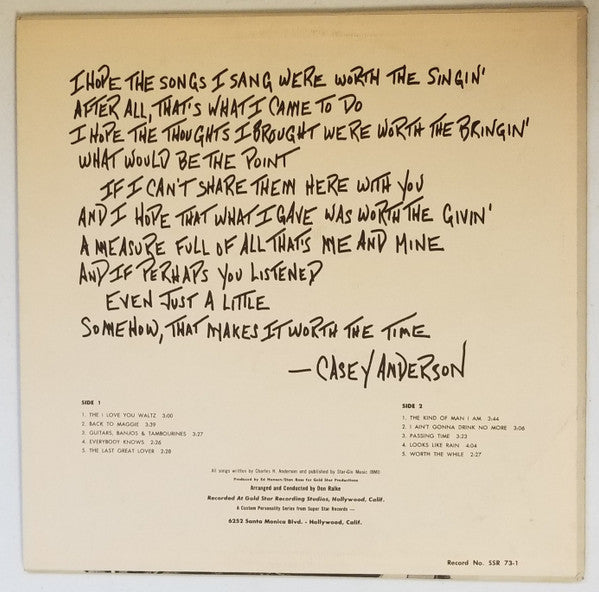 I HOPE THE SONGS I SANG WERE WORTH THE SINGIN'
AFTER ALL, THAT'S WHAT I CAME TO DO
I HOPE THE THOUGHTS I BROUGHT WERE WORTH THE BRINGIN'
WHAT WOULD BE THE POINT
IF I CAN'T SHARE THEM HERE WITH YOU
AND I HOPE THAT WHAT I GAVE WAS WORTH THE GIVIN'
A MEASURE FULL OF ALL THAT'S ME AND MINE
AND IF PERHAPS YOU LISTENED
EVEN JUST A LITTLE
SOMEHOW, THAT MAKES IT WORTH THE TIME
—CASEY ANDERSON
SIDE 1
1. THE I LOVE YOU WALTZ 3:00
2. BACK TO MAGGIE 3:39
3. GUITARS, BANJOS & TAMBOURINES 3:27
4. EVERYBODY KNOWS 2:36
5. THE LAST GREAT LOVER 2:28
SIDE 2
1. THE KIND OF MAN I AM 3:44
2. I AIN'T GONNA DRINK NO MORE 3:06
3. PASSING TIME 3:23
4. LOOKS LIKE RAIN 4:04
5. WORTH THE WHILE 2:27
All songs written by Charles H. Anderson and published by Star-Glo Music (BMI)
Produced by Ed Hansen/Stan Ross for Gold Star Productions
Arranged and Conducted by Don Ralke
Recorded At Gold Star Recording Studios, Hollywood, Calif.
A Custom Personality Series from Super Star Records —
6252 Santa Monica Blvd. - Hollywood, Calif.
Record No. SSR 73-1